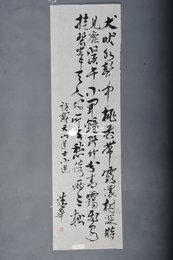 犬吠水聲中桃花帶露濃樹深時
見鹿溪午不聞鐘野竹分青靄飛泉
挂碧峯無人知所去愁倚兩三松
訪戴天山道士不遇